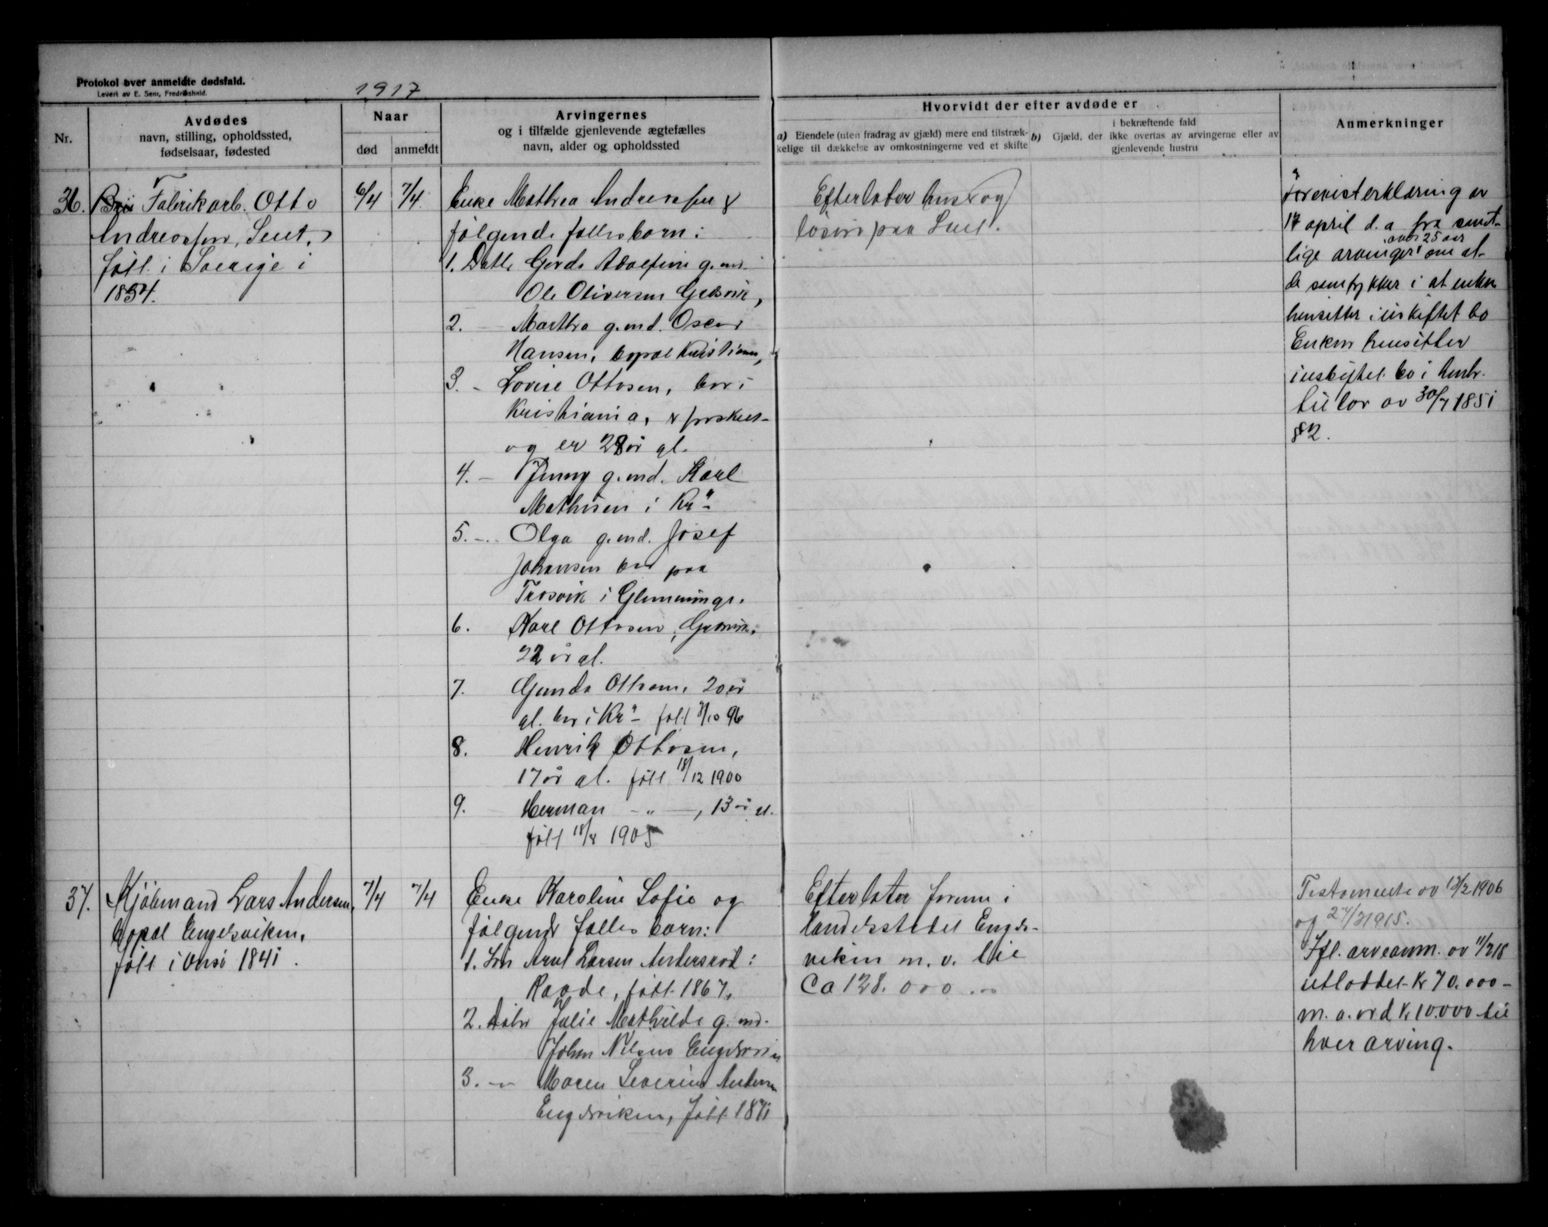 Protokol over anmeldte dødsfald.
Levert av E. Sem, Fredrikshald.
1917
Nr.
Avdødes
navn, stilling, opholdssted,
fødselsaar, fødested
Naar
død
anmeldt
Arvingernes
og i tilfælde gjenlevende ægtefælles
navn, alder og opholdssted
Hvorvidt der efter avdøde er
a) Eiendele (uten fradrag av gjæld) mere end tilstræk-
kelige til dækkelse av omkostningerne ved et skifte
b) Gjæld, der i bekræftende fald
ikke overtas av arvingerne eller av
gjenlevende hustru
Anmerkninger
36.
Fabrikarb. Otto
Andreassen,
født i Sverige i
1854.
6/4
7/4
Enke Mathea Andreassen &
følgende fælles børn:
1. Datter Gerda Adolfine g. m.
Ole Oliversen Gresvik,
2. Martha g. md. Oscar
Hansen, bopæl Kristiania,
3. - Lovise Ottosen, bor i
Kristiania, er fraskilt
og er 28 år gl.
4. - Jenny g. md. Karl
Mathisen i Kr.a
5. - Olga g. md. Josef
Johansen bor paa
Trosvik i Glemminge.
6. Karl Ottosen, Gresvik,
22 år gl.
7. Gunda Ottosen, 20 år
gl. bor i Kr.a født 7/10 96
8. Henrik Ottosen,
17 år gl. født 18/12 1900
9. Herman - " -, 13 år gl.
født 18/4 1905
Efterlater hus og
løsøre paa
Forevist erklæring av
14 april d. a. fra samt-
lige arvinger over 25 aar om at
de samtykker i at enken
hensitter i uskiftet bo
Enken hensitter
i uskiftet bo i henh.
til lov av 30/7 1851
§ 2.
37.
Kjøbmand Lars Andersen,
bopæl Engelsviken,
født i Onsø 1841.
7/4
7/4
Enke Karoline Sofie og
følgende fælles børn:
1. Søn Arnt Larsen Andersrød i
Raade, født 1867,
2. Datter Julie Mathilde g. md.
Johan Nilsen Engelsviken
3. - Maren Severine Andersen
Engelsviken, født 1871
Efterlater formue i
landsstedet Engels-
viken m. v. til
ca 128.000
Testamente av 13/2 1906
og 27/7 1915.
Ifl. arveanm. av 11/2 18
utloddet Kr 70.000 -
m. a. ord Kr 10.000 til
hver arving.